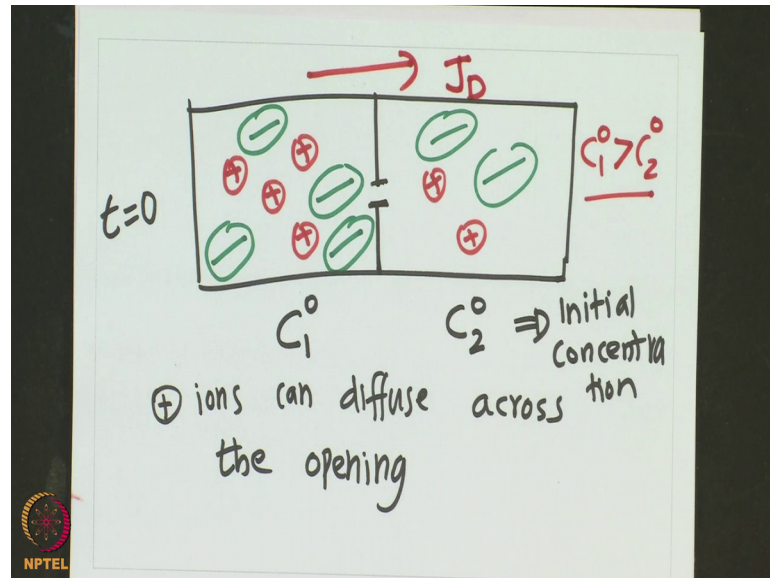 J_D
C_1^0 > C_2^0
t=0
C_1^0
C_2^0 ⇒ Initial
concentra
tion
⊕ ions can diffuse across
the opening
NPTEL